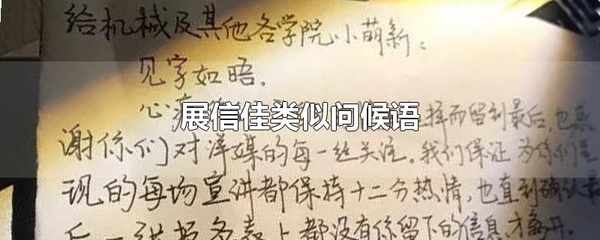 给机械及其他各学院小萌新：
见字如晤。
展信佳类似问候语
心 择而留到最后，也
谢你们对泽媒的每一丝关注。我们保证为你们呈
现的每场宣讲都保持十二分热情，也直到确认最
后一 都没有你留下的信息，才离开。